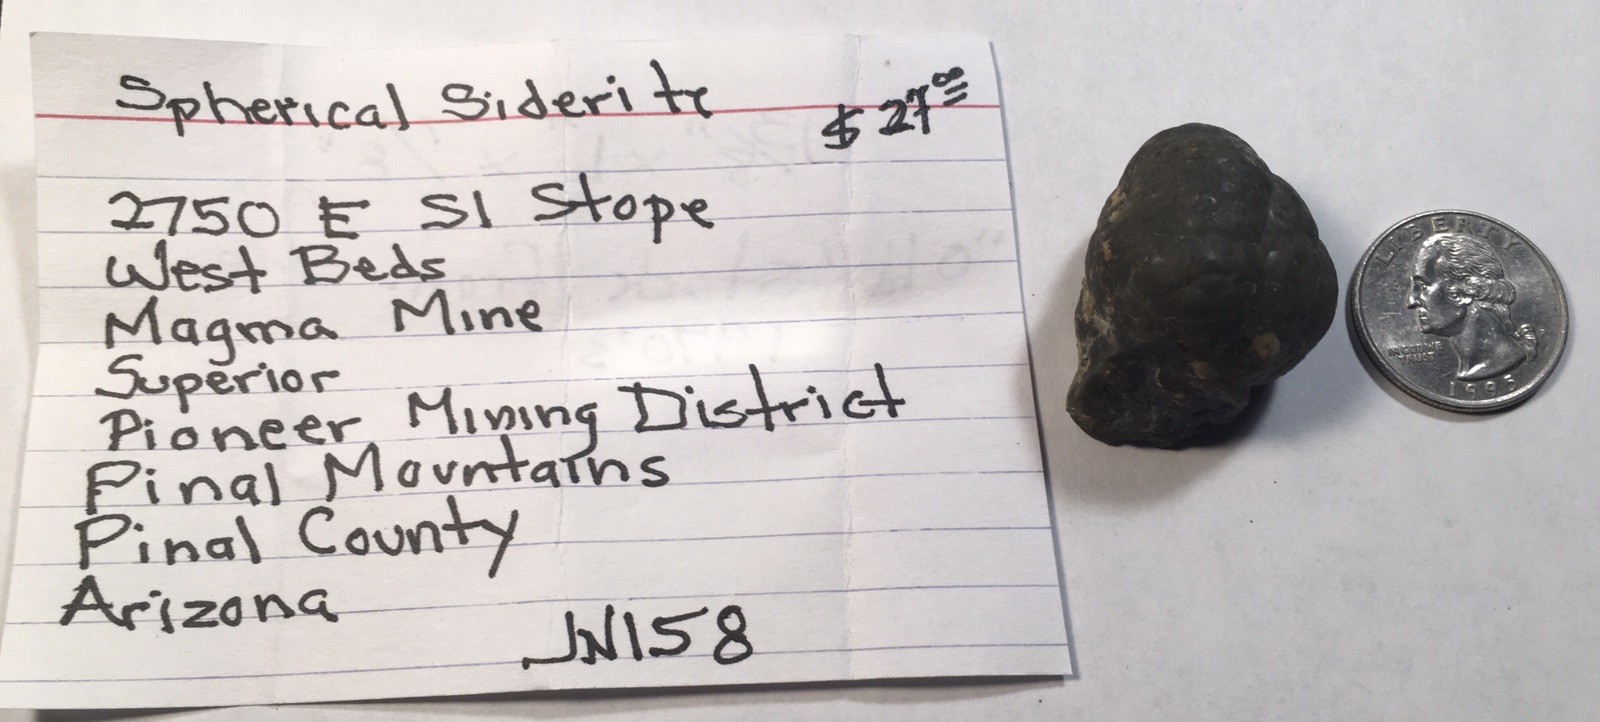 Spherical Siderite $ 27⁰⁰
2750 E S1 Stope
West Beds
Magma Mine
Superior
Pioneer Mining District
Pinal Mountains
Pinal County
Arizona
JN158
LIBERTY